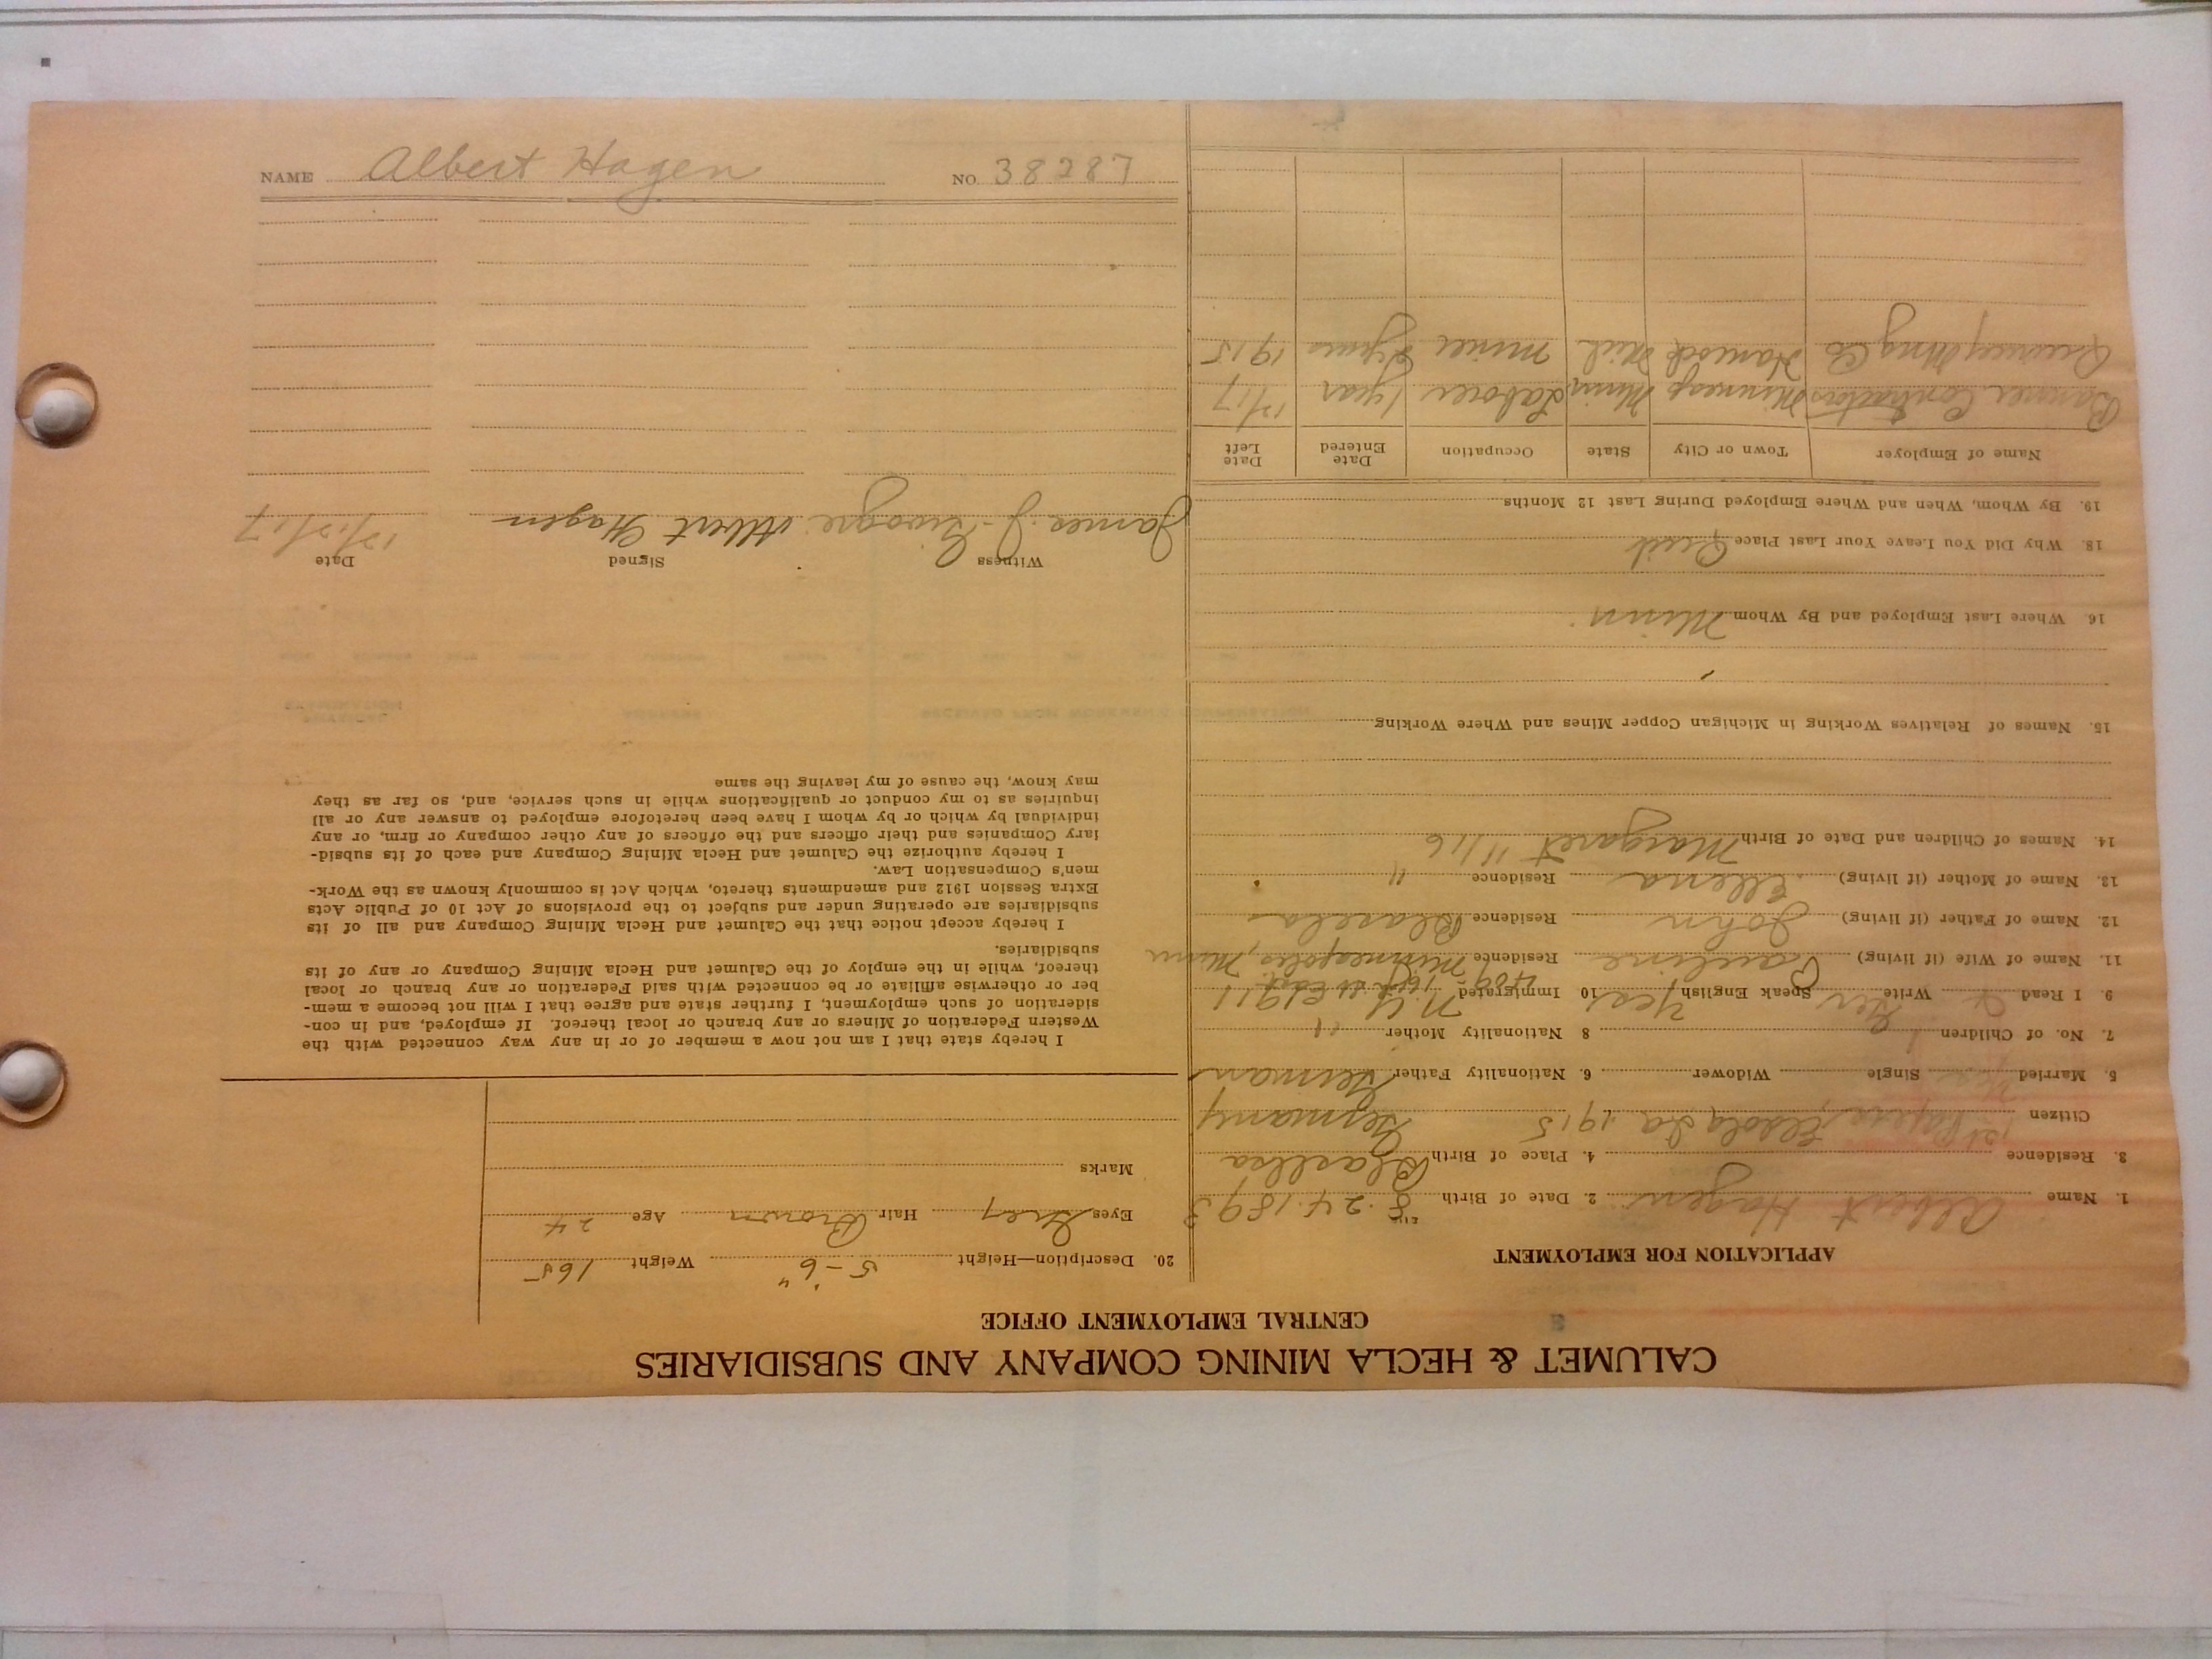 CALUMET & HECLA MINING COMPANY AND SUBSIDIARIES
CENTRAL EMPLOYMENT OFFICE
APPLICATION FOR EMPLOYMENT
1. Name Albert Hagen 2. Date of Birth 8.24.1893
3. Residence 4. Place of Birth
Germany
Citizen 1st Papers, 1915
5. Married Yes Single Widower 6. Nationality Father German
7. No. of Children 1 8 Nationality Mother "
9. I Read & Write Ger Speak English Yes 10 Immigrated N.Y. 1911
489- 16th St East
11. Name of Wife (if living) Pauline Residence Minneapolis, Minn
12. Name of Father (if living) John Residence
13. Name of Mother (if living) Ellena Residence "
14. Names of Children and Date of Birth Margaret 11/16
15. Names of Relatives Working in Michigan Copper Mines and Where Working
16. Where Last Employed and By Whom Minn
18. Why Did You Leave Your Last Place Quit
19. By Whom, When and Where Employed During Last 12 Months
Name of Employer Town or City State Occupation Date Entered Date Left
Contractors Minneap Minn Laborer 1 year 12/17
Quincey Mng Co Hancock Mich Miner 1915
20. Description—Height 5-6" Weight 165
Eyes Grey Hair Brown Age 24
Marks
I hereby state that I am not now a member of or in any way connected with the
Western Federation of Miners or any branch or local thereof. If employed, and in con-
sideration of such employment, I further state and agree that I will not become a mem-
ber or otherwise affiliate or be connected with said Federation or any branch or local
thereof, while in the employ of the Calumet and Hecla Mining Company or any of its
subsidiaries.
I hereby accept notice that the Calumet and Hecla Mining Company and all of its
subsidiaries are operating under and subject to the provisions of Act 10 of Public Acts
Extra Session 1912 and amendments thereto, which Act is commonly known as the Work-
men's Compensation Law.
I hereby authorize the Calumet and Hecla Mining Company and each of its subsid-
iary Companies and their officers and the officers of any other company or firm, or any
individual by which or by whom I have been heretofore employed to answer any or all
inquiries as to my conduct or qualifications while in such service, and, so far as they
may know, the cause of my leaving the same
Witness Signed Date
James J. Albert Hagen 12/12/17
NAME Albert Hagen NO 38287